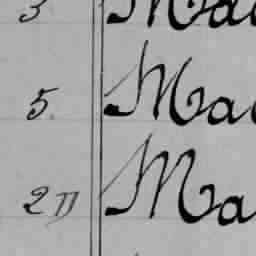 3 Ma
5. Ma
2 " Ma